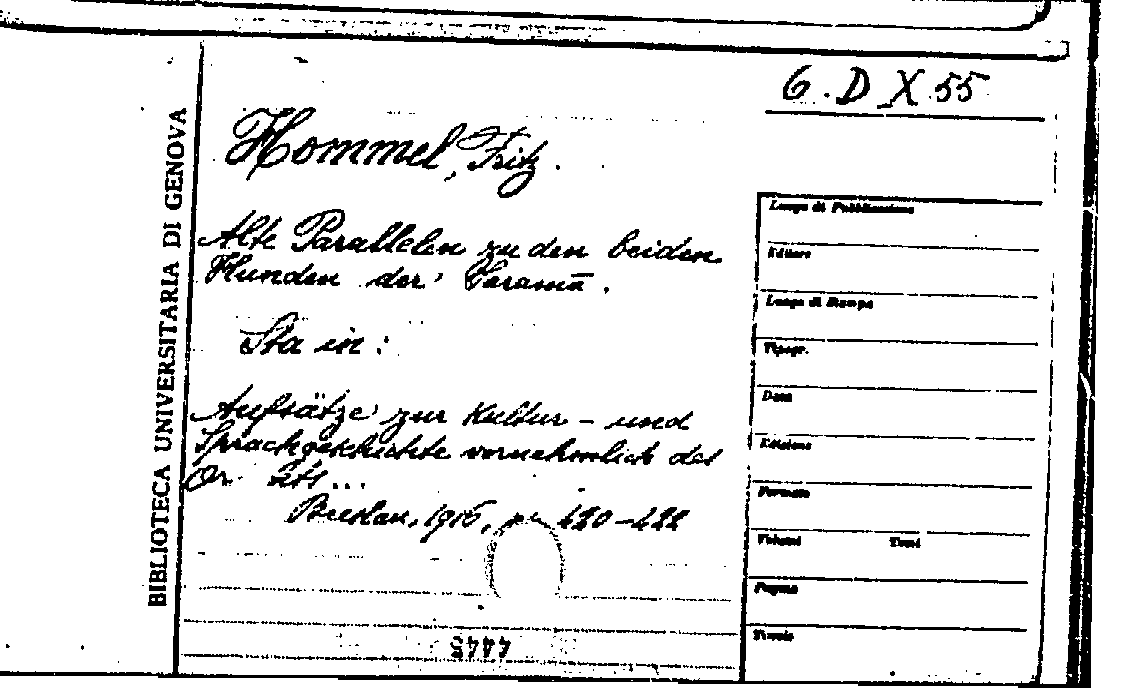 6. D X 55
Hommel, Fritz.
Alte Parallelen zu den beiden
Hunden der Saramā.
Sta in:
Aufsätze zur Kultur - und
Sprachgeschichte vornehmlich des
Or
Breslau, 1916, 420-422
BIBLIOTECA UNIVERSITARIA DI GENOVA
Luogo di Pubblicazione
Editore
Luogo di Stampa
Tipogr.
Data
Edizione
Formato
Volumi Tomi
Pagine
Tavole
4445